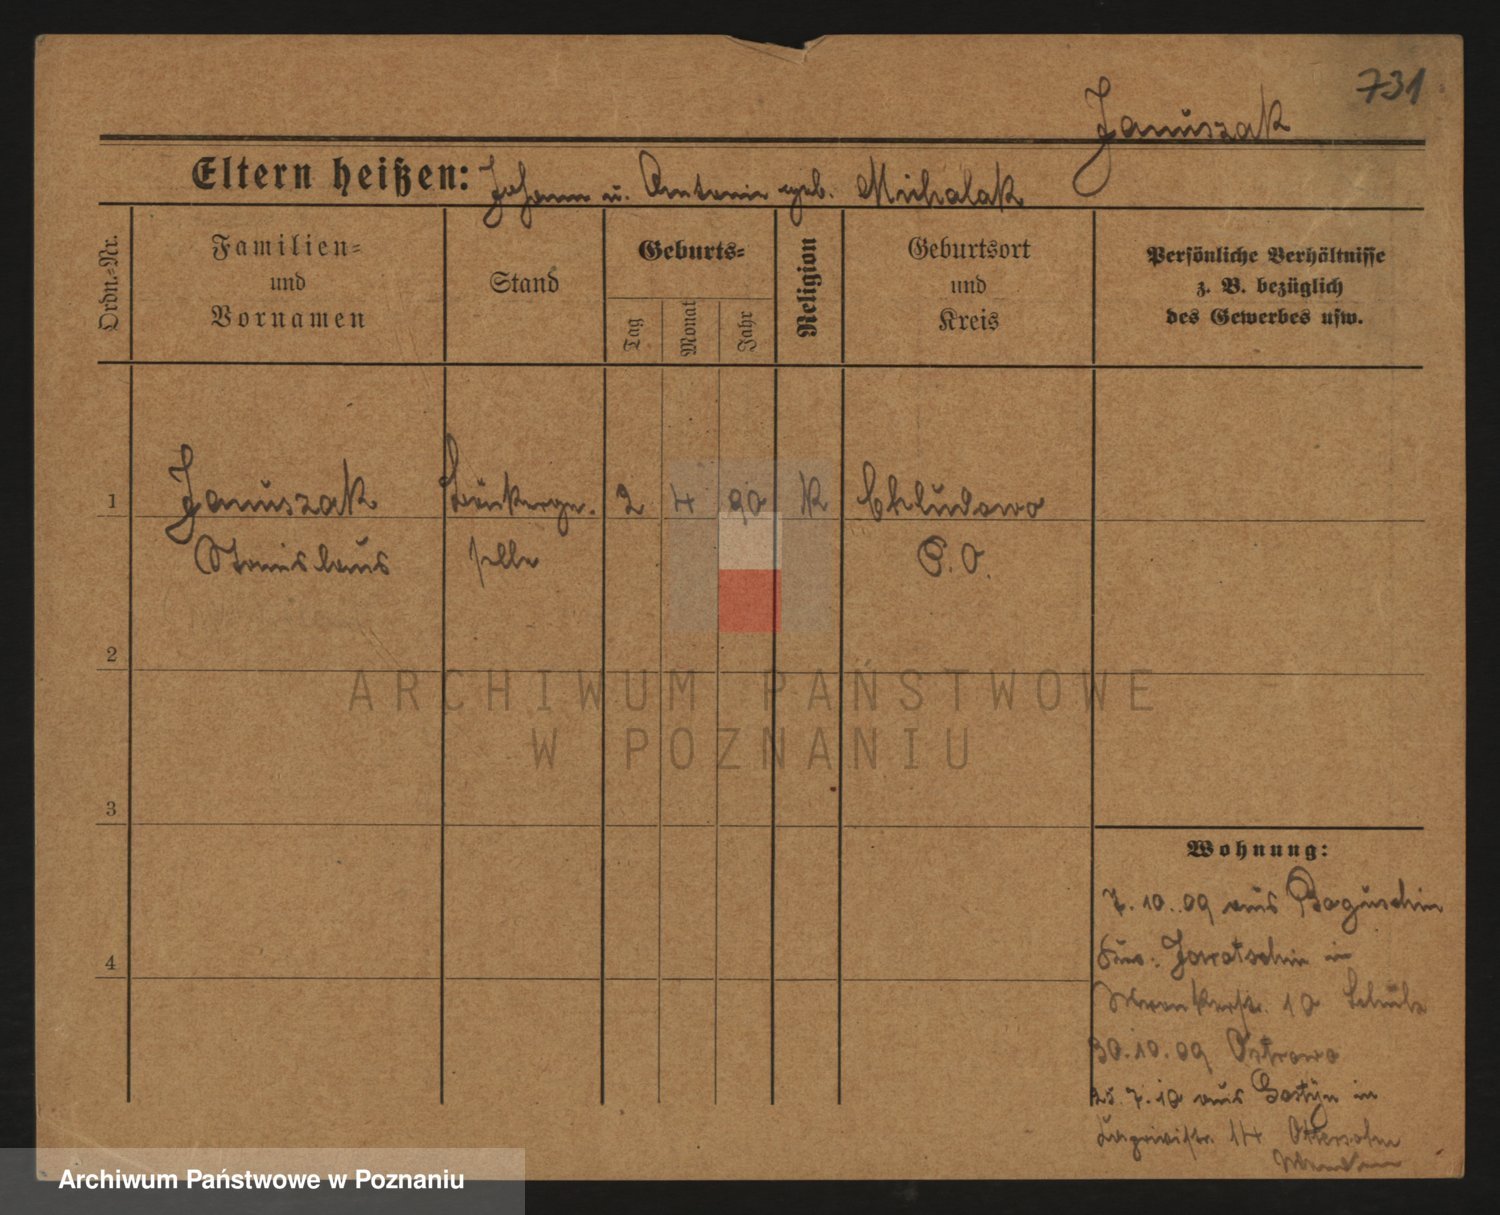 731
Januszak
Eltern heißen: Johann u. Antonie geb. Michalak
Ordn.-Nr.
Familien-
und
Vornamen
Stand
Geburts-
Tag
Monat
Jahr
Religion
Geburtsort
und
Kreis
Persönliche Verhältnisse
z. B. bezüglich
des Gewerbes usw.
1
Januszak
Stanislaus
Bäckerge-
selle
2
4
90
K
Chludowo
P. O.
2
3
4
Wohnung:
7.10.09 aus Boguschin
Jarotschin in
Wronkerstr. 10 Schulz
30.10.09 Ostrowo
25.7.10 aus Gostyn in
14
ARCHIWUM PAŃSTWOWE
W POZNANIU
Archiwum Państwowe w Poznaniu